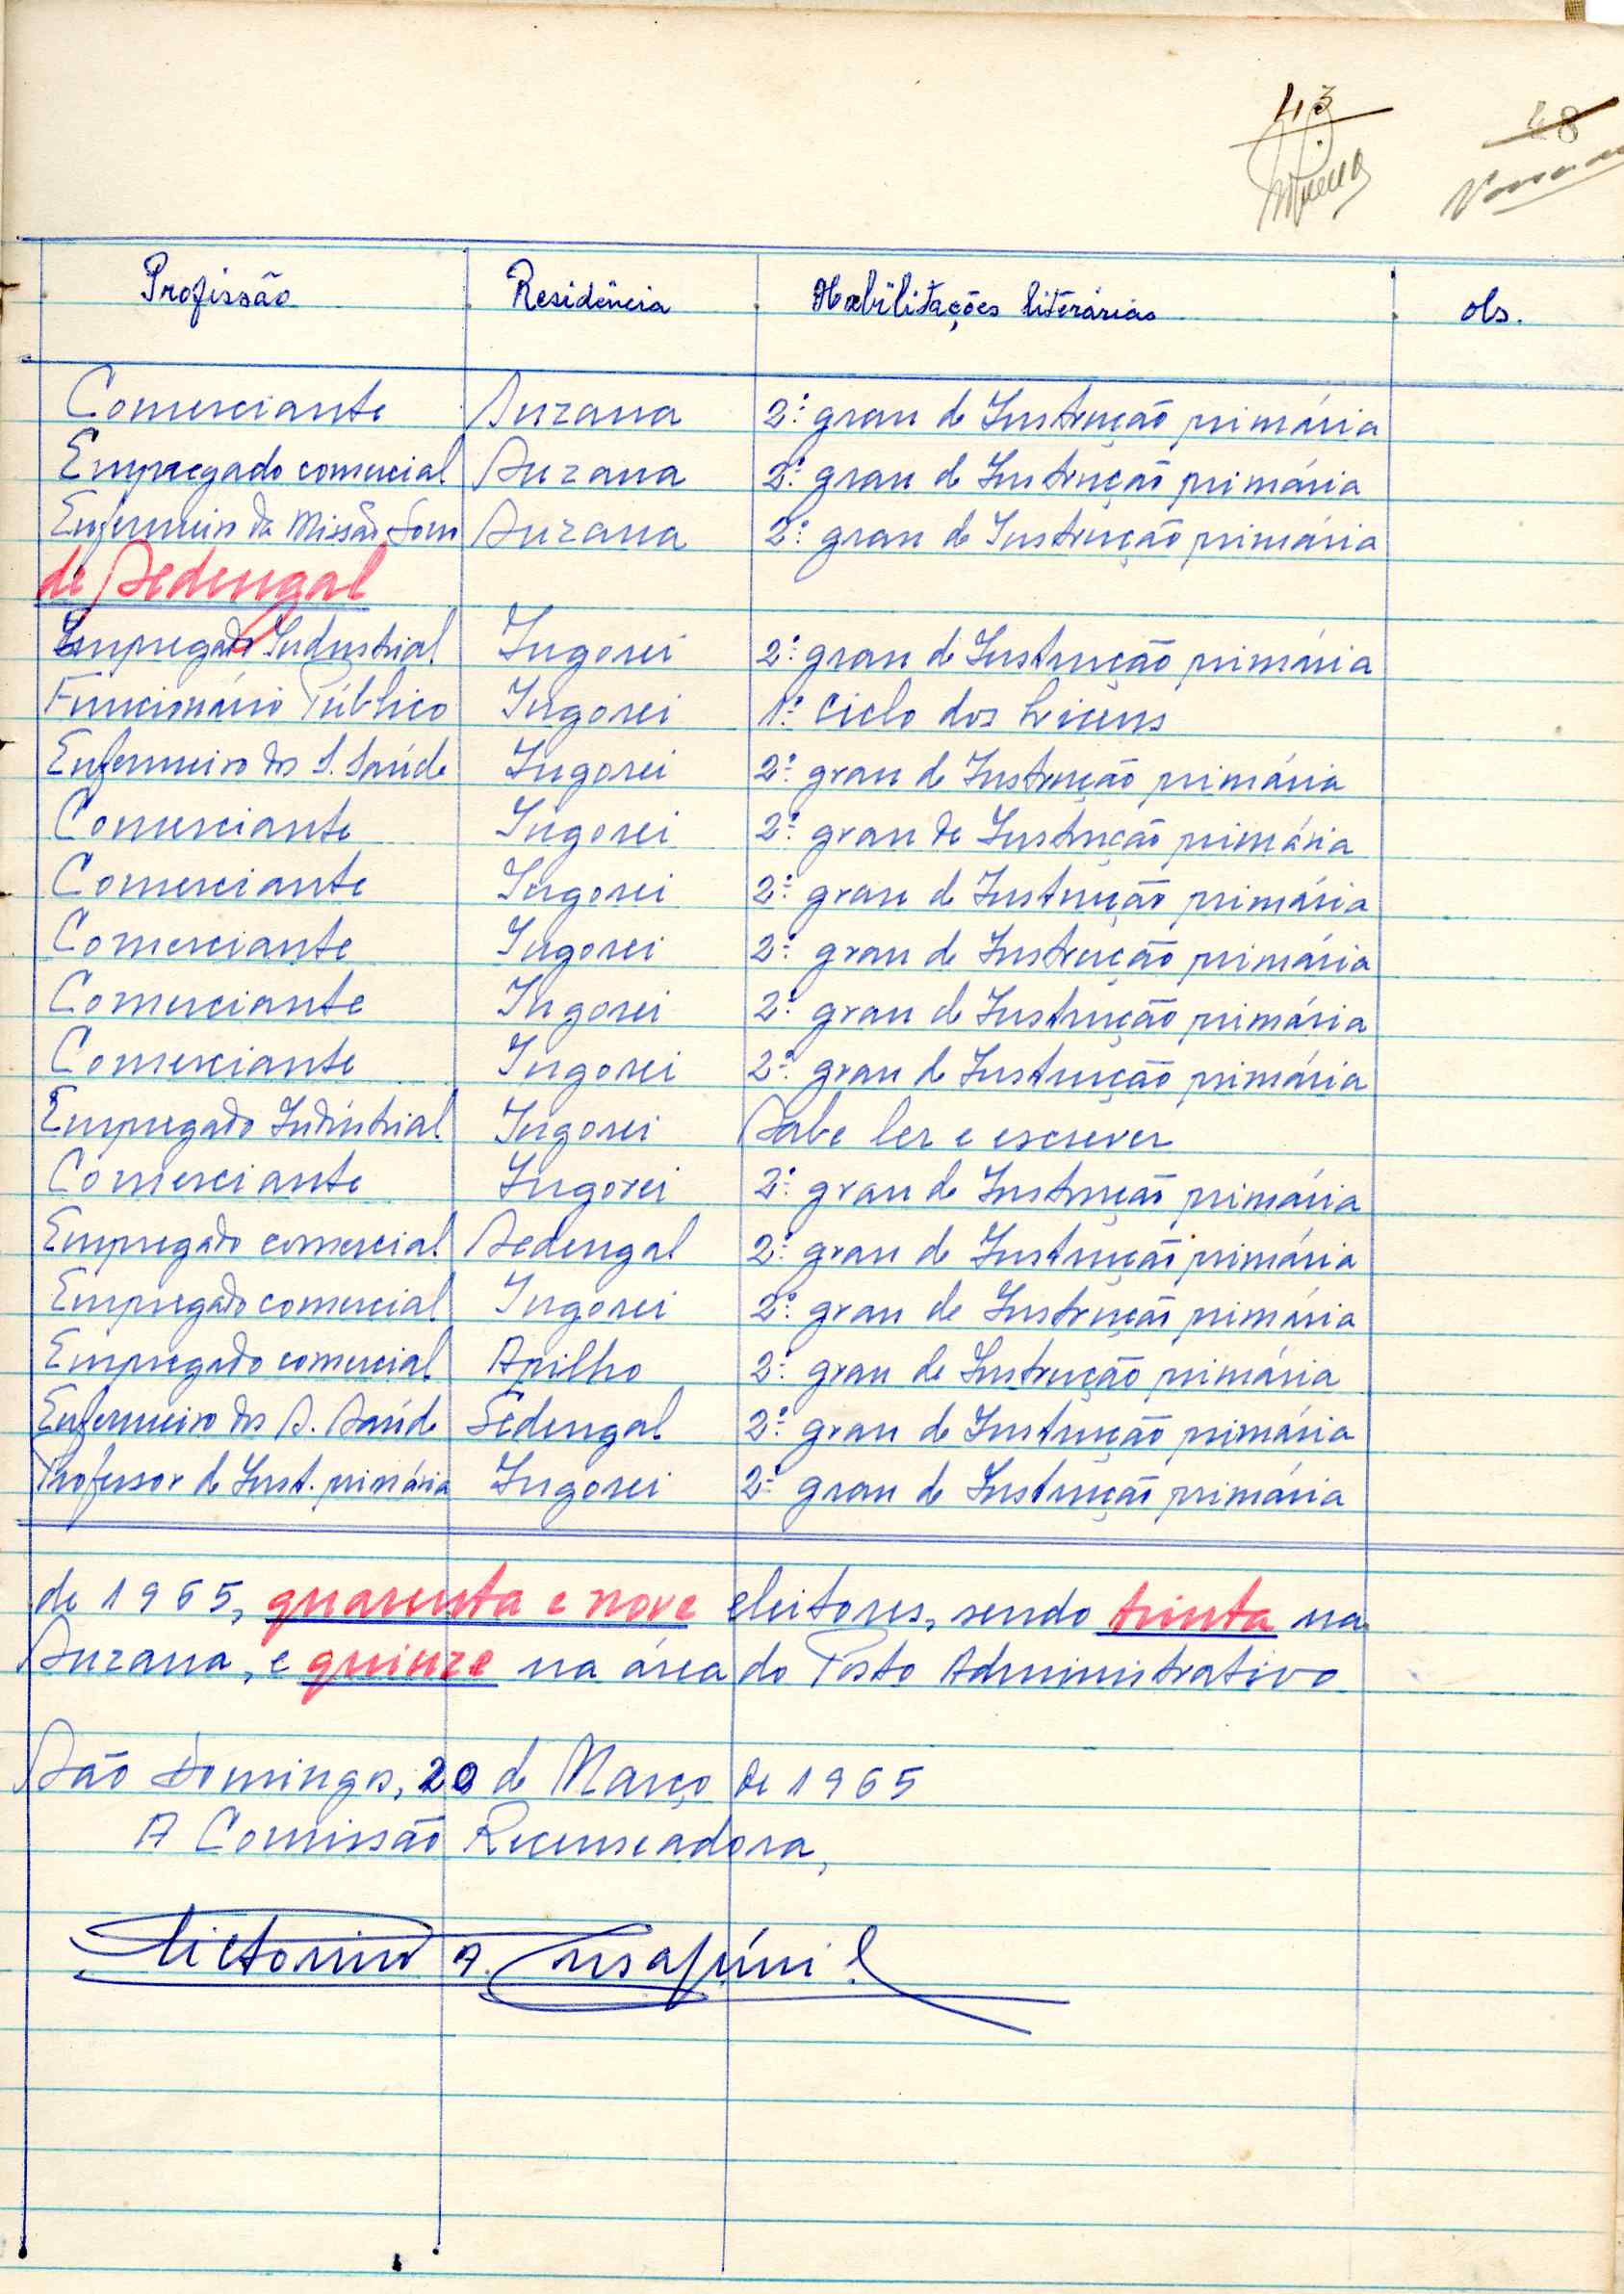 43
48
Profissão Residência Habilitações literárias obs.
Comerciante Suzana 2º grau de Instrução primária
Empregado comercial Suzana 2º grau de Instrução primária
Enfermeiro da Missão Suzana 2º grau de Instrução primária
de Sedengal
Empregado Industrial Ingorei 2º grau de Instrução primária
Funcionário Público Ingorei 1º Ciclo dos Liceus
Enfermeiro dos S. Saúde Ingorei 2º grau de Instrução primária
Comerciante Ingorei 2º grau de Instrução primária
Comerciante Ingorei 2º grau de Instrução primária
Comerciante Ingorei 2º grau de Instrução primária
Comerciante Ingorei 2º grau de Instrução primária
Comerciante Ingorei 2º grau de Instrução primária
Empregado Indústrial Ingorei Sabe ler e escrever
Comerciante Ingorei 2º grau de Instrução primária
Empregado comercial Sedengal 2º grau de Instrução primária
Empregado comercial Ingorei 2º grau de Instrução primária
Empregado comercial Apilho 2º grau de Instrução primária
Enfermeiro dos S. Saúde Sedengal 2º grau de Instrução primária
Professor de Inst. primária Ingorei 2º grau de Instrução primária
de 1965, quarenta e nove eleitores, sendo trinta na
Suzana, e quinze na área do Posto Administrativo
São Domingos, 20 de Março de 1965
A Comissão Recenseadora,
Victorino A.